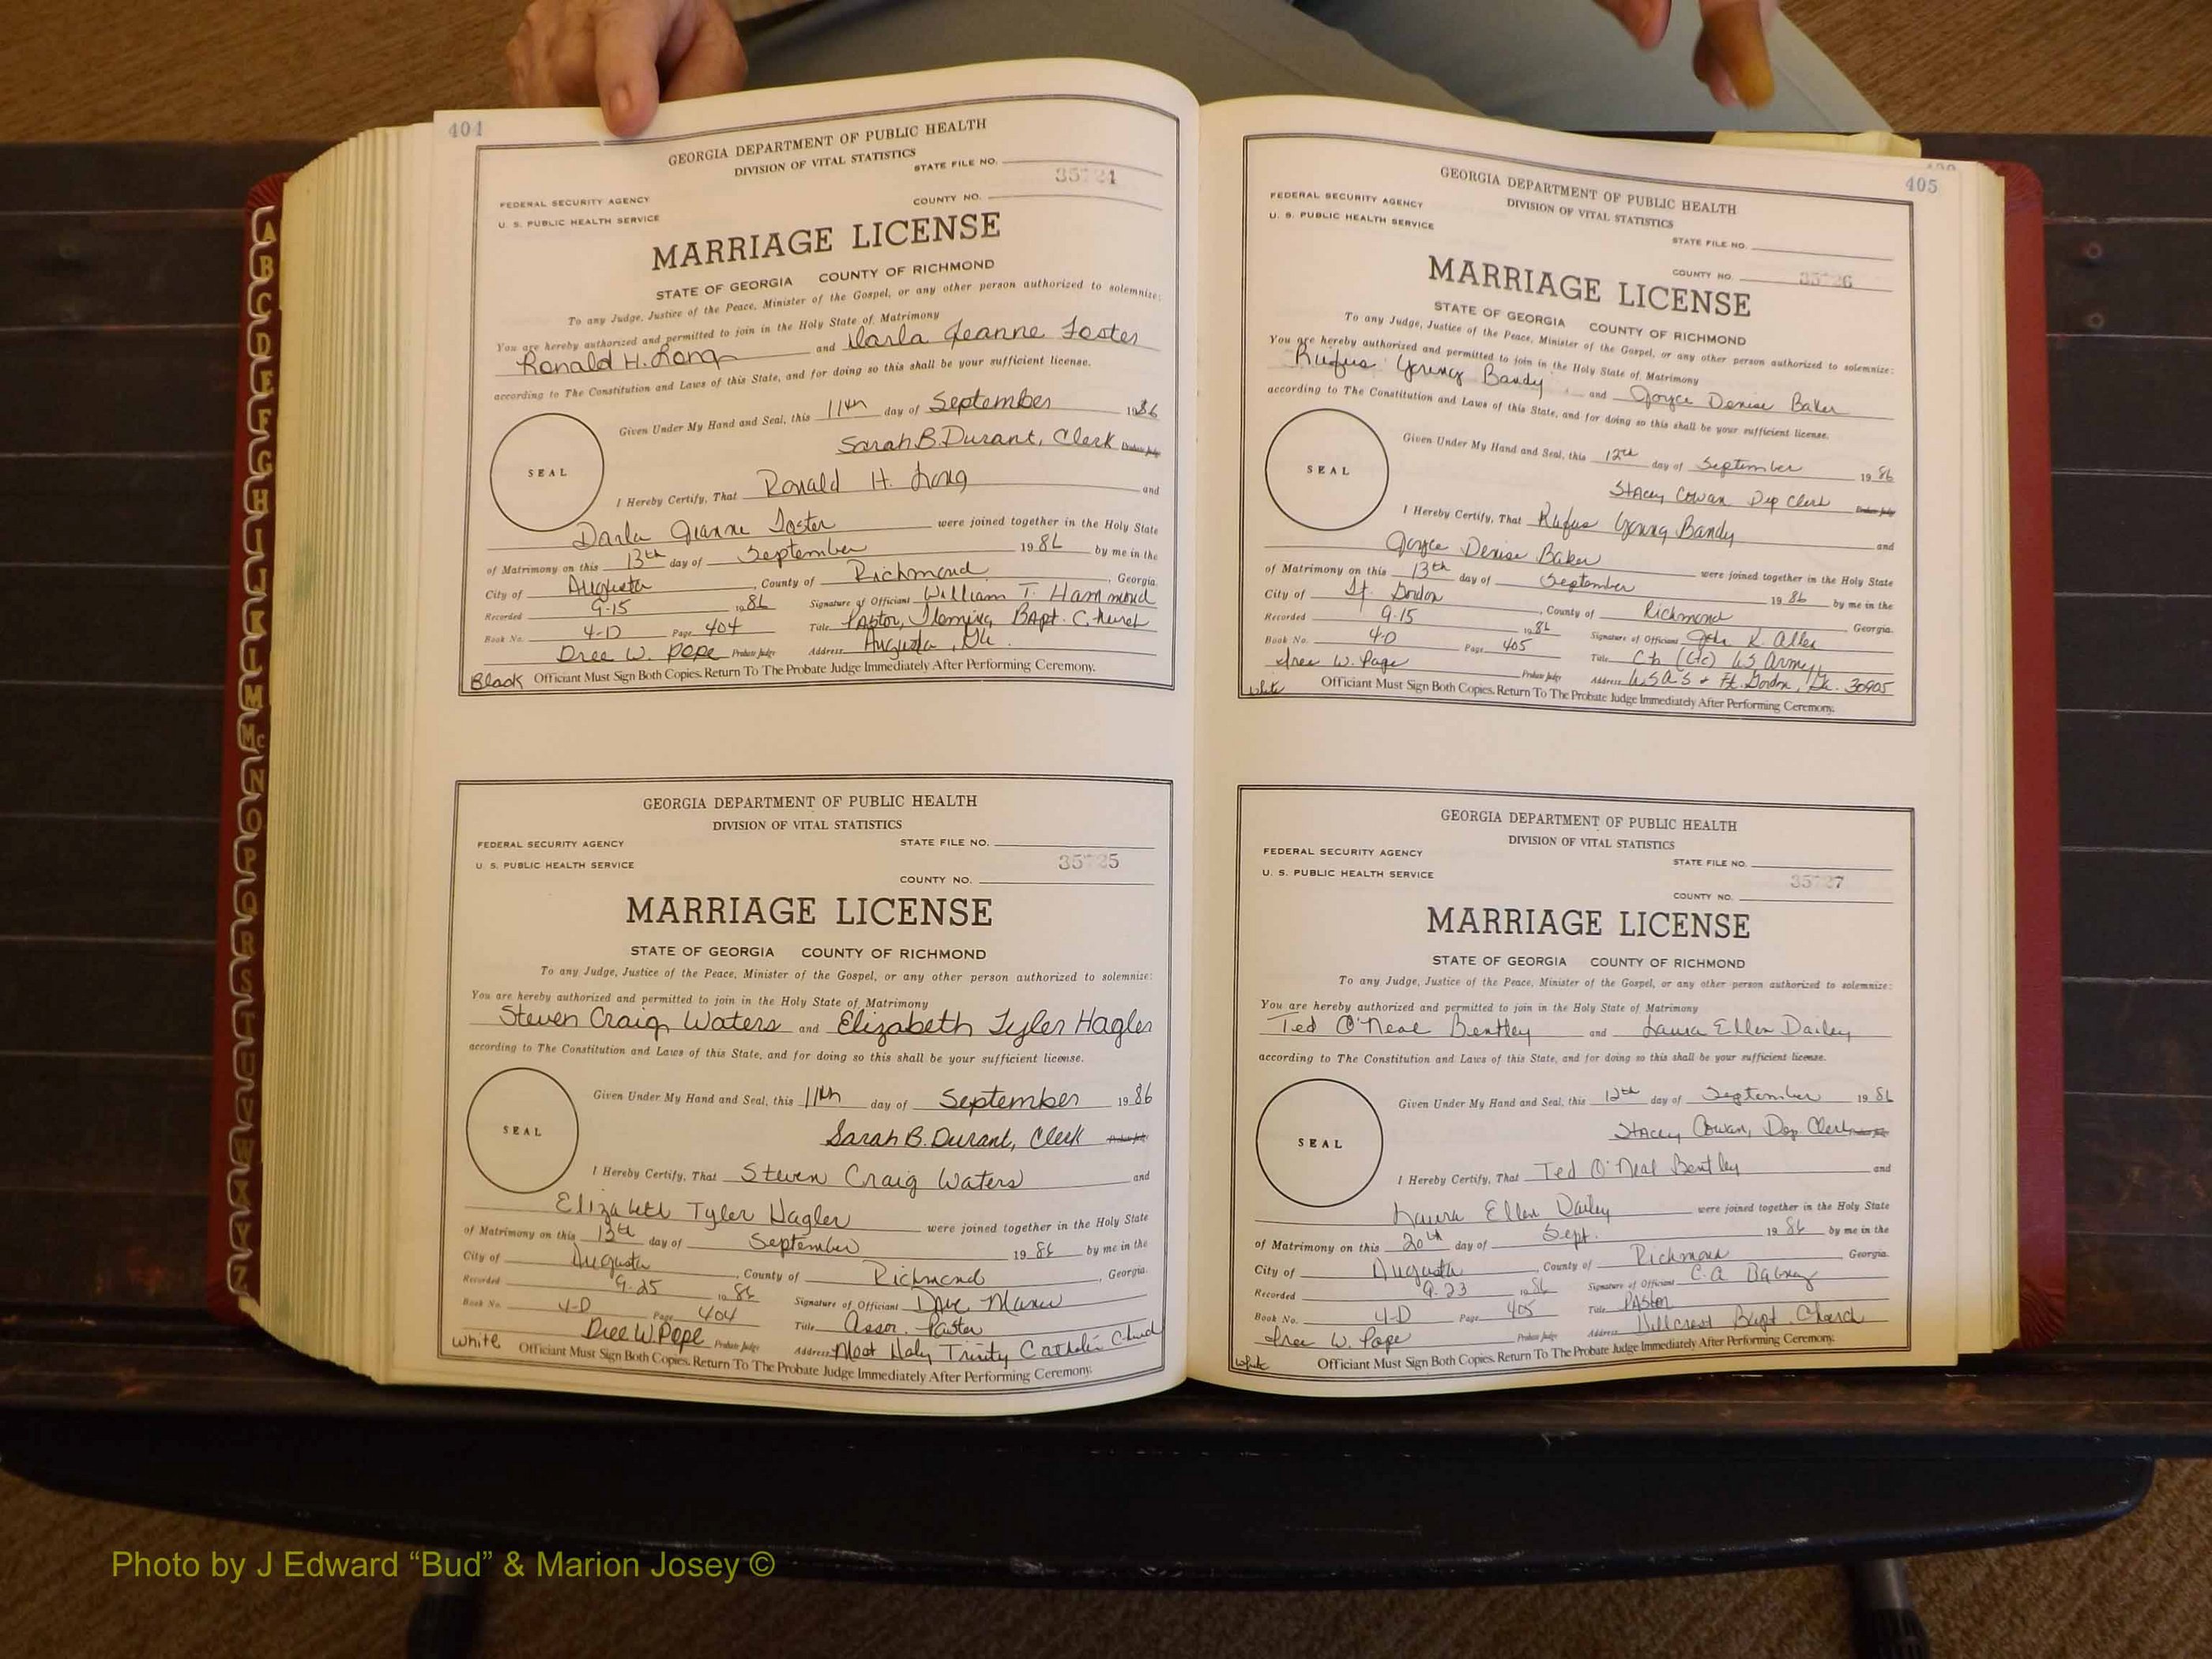 404
GEORGIA DEPARTMENT OF PUBLIC HEALTH
DIVISION OF VITAL STATISTICS
STATE FILE NO.
FEDERAL SECURITY AGENCY
COUNTY NO.
U. S. PUBLIC HEALTH SERVICE
MARRIAGE LICENSE
STATE OF GEORGIA COUNTY OF RICHMOND
To any Judge, Justice of the Peace, Minister of the Gospel, or any other person authorized to solemnize:
You are hereby authorized and permitted to join in the Holy State of Matrimony
Ronald H. Long and Darla Jeanne Foster
according to The Constitution and Laws of this State, and for doing so this shall be your sufficient license.
Given Under My Hand and Seal, this 11th day of September 1986
Sarah B. Durant, Clerk
SEAL
I Hereby Certify, That Ronald H. Long and
Darla Jeanne Foster were joined together in the Holy State
of Matrimony on this 13th day of September 1986 by me in the
City of Augusta, County of Richmond, Georgia.
Recorded 9-15 1986 Signature of Officiant William T. Hammond
Book No. 4-D Page 404 Title Pastor, Fleming Bapt. Church
Dree W. Pope Probate Judge Address Augusta, Ga.
Black Officiant Must Sign Both Copies. Return To The Probate Judge Immediately After Performing Ceremony.
GEORGIA DEPARTMENT OF PUBLIC HEALTH
DIVISION OF VITAL STATISTICS
FEDERAL SECURITY AGENCY STATE FILE NO.
U. S. PUBLIC HEALTH SERVICE
COUNTY NO.
MARRIAGE LICENSE
STATE OF GEORGIA COUNTY OF RICHMOND
To any Judge, Justice of the Peace, Minister of the Gospel, or any other person authorized to solemnize:
You are hereby authorized and permitted to join in the Holy State of Matrimony
Steven Craig Waters and Elizabeth Tyler Hagler
according to The Constitution and Laws of this State, and for doing so this shall be your sufficient license.
Given Under My Hand and Seal, this 11th day of September 1986
Sarah B. Durant, Clerk
SEAL
I Hereby Certify, That Steven Craig Waters and
Elizabeth Tyler Hagler were joined together in the Holy State
of Matrimony on this 13th day of September 1986 by me in the
City of Augusta, County of Richmond, Georgia.
Recorded 9-25 1986 Signature of Officiant
Book No. 4-D Page 404 Title Assoc. Pastor
Dree W. Pope Probate Judge Address Most Holy Trinity Catholic Church
White Officiant Must Sign Both Copies. Return To The Probate Judge Immediately After Performing Ceremony.
405
GEORGIA DEPARTMENT OF PUBLIC HEALTH
DIVISION OF VITAL STATISTICS
FEDERAL SECURITY AGENCY
U. S. PUBLIC HEALTH SERVICE
STATE FILE NO.
COUNTY NO.
MARRIAGE LICENSE
STATE OF GEORGIA COUNTY OF RICHMOND
To any Judge, Justice of the Peace, Minister of the Gospel, or any other person authorized to solemnize:
You are hereby authorized and permitted to join in the Holy State of Matrimony
Rufus Young Bandy and Joyce Denise Baker
according to The Constitution and Laws of this State, and for doing so this shall be your sufficient license.
Given Under My Hand and Seal, this 12th day of September 1986
Stacey Cowan Dep Clerk
SEAL
I Hereby Certify, That Rufus Young Bandy and
Joyce Denise Baker were joined together in the Holy State
of Matrimony on this 13th day of September 1986 by me in the
City of Ft. Gordon, County of Richmond Georgia.
Recorded 9-15 1986 Signature of Officiant John K. Allen
Book No. 4-D Page 405 Title Ch (Ltc) US Army
Dree W. Pope Probate Judge Address Ft. Gordon, Ga. 30905
White Officiant Must Sign Both Copies. Return To The Probate Judge Immediately After Performing Ceremony.
GEORGIA DEPARTMENT OF PUBLIC HEALTH
DIVISION OF VITAL STATISTICS
FEDERAL SECURITY AGENCY STATE FILE NO.
U. S. PUBLIC HEALTH SERVICE
COUNTY NO.
MARRIAGE LICENSE
STATE OF GEORGIA COUNTY OF RICHMOND
To any Judge, Justice of the Peace, Minister of the Gospel, or any other person authorized to solemnize:
You are hereby authorized and permitted to join in the Holy State of Matrimony
Ted O'Neal Bentley and Laura Ellen Dailey
according to The Constitution and Laws of this State, and for doing so this shall be your sufficient license.
Given Under My Hand and Seal, this 12th day of September 1986
Stacey Cowan, Dep. Clerk
SEAL
I Hereby Certify, That Ted O'Neal Bentley and
Laura Ellen Dailey were joined together in the Holy State
of Matrimony on this 20th day of Sept. 1986 by me in the
City of Augusta, County of Richmond Georgia.
Recorded 9-23 1986 Signature of Officiant C.A.
Book No. 4-D Page 405 Title Pastor
Dree W. Pope Probate Judge Address Hillcrest Bapt. Church
White Officiant Must Sign Both Copies. Return To The Probate Judge Immediately After Performing Ceremony.
Photo by J Edward “Bud” & Marion Josey ©